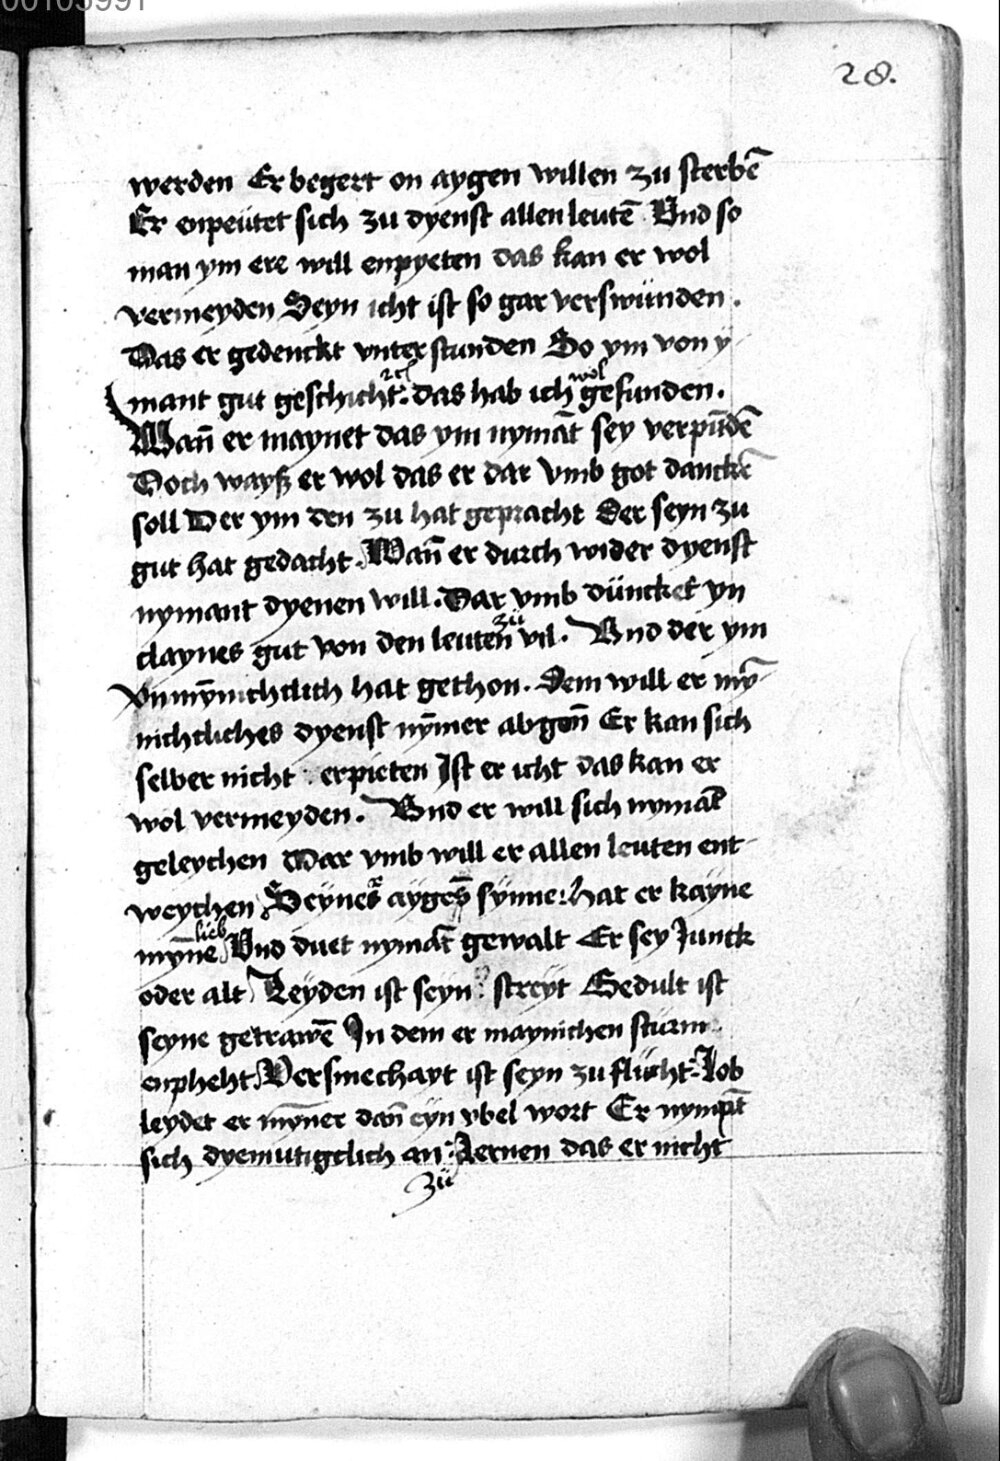 00103991
28.
werden Er begert on aygen willen zu sterbē
Er enpeütet sich zu dyenst allen leutē Vnd so
man ym ere will enpyeten das kan er wol
vermeyden Seyn icht ist so gar verswünden.
Das er gedenckt vnter stunden So ym von y
mant gut geschicht. das hab ich wol gefunden.
Wañ er maynet das ym nymāt sey verpūdē
Doch wayß er wol das er dar vmb got danckē
soll Der ym den zu hat gepracht Der seyn zu
gut hat gedacht. Wañ er durch wider dyenst
nymant dyenen will. Dar vmb düncket yn
claynes gut von den leuten zü vil. Vnd der ym
vnmȳnichclich hat gethon. Dem will er mȳ
nichcliches dyenst nȳmer abgen̄ Er kan sich
selber nicht erpieten Ist er icht das kan er
wol vermeyden. Vnd er will sich nymāt
geleychen Dar vmb will er allen leuten ent
weychen Seynes aygēs synne hat er kayne
mȳne lieb Vnd duet nymāt gewalt Er sey Junck
oder alt Leyden ist seyn streyt Gedult ist
seyne getrawē In dem er maynichen sturm
enpheht. Versmechayt ist seyn zu flücht. Job
leydet er mȳner dañ eyn vbel wort Er nympt
sich dyemutigclich an Lernen das er nicht
zü